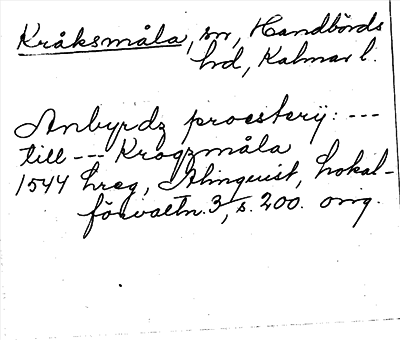 Kråksmåla, sn, Handbörds
hd, Kalmar l.
Anbyrdz proesterij: ---
till --- Krogzmåla
1544 hreg, Almquist, Lokal-
förvaltn. 3, s. 200. orig.